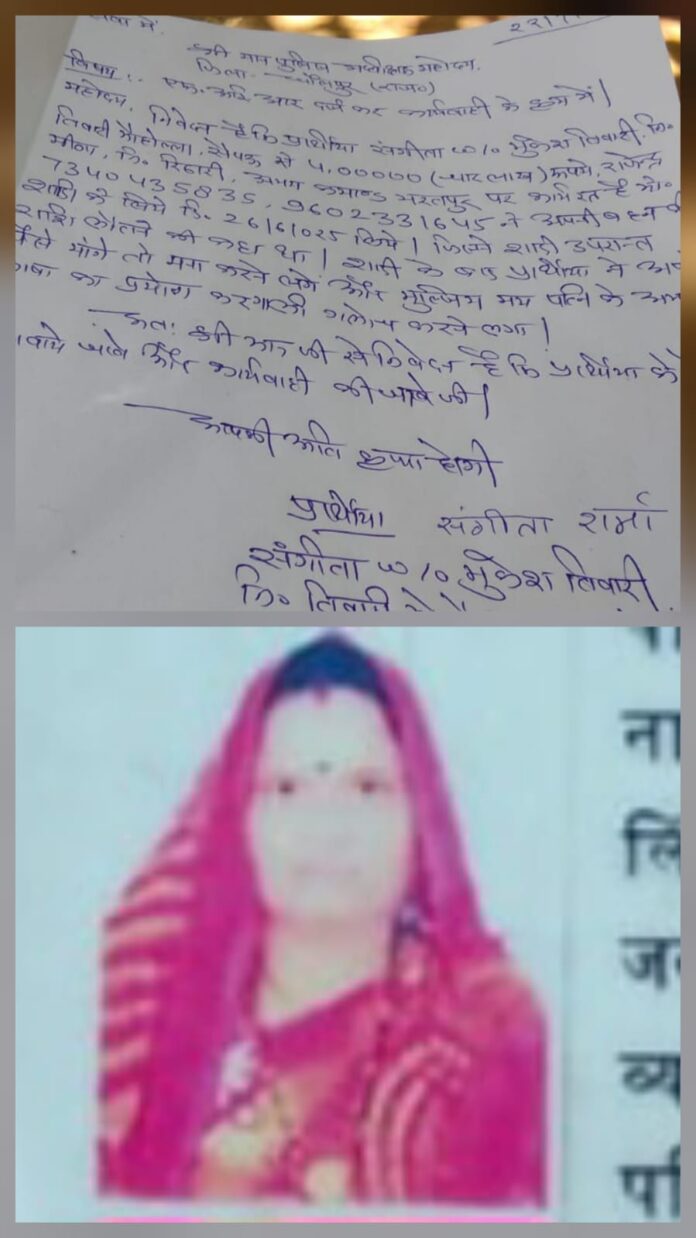 सेवा में,
श्री मान पुलिस अधीक्षक महोदय,
जिला - धौलपुर (राज०)
विषय :- एफ. आई. आर दर्ज कर कार्यवाही के क्रम में।
महोदय,
निवेदन है कि प्रार्थीया संगीता w/o मुकेश तिवारी, नि०
तिवारी मौहल्ला, सैपऊ से 4,00000 (चार लाख) रूपये, राजेन्द्र
मीणा, नि० अपना भरतपुर पर कार्यरत है मो०
7340435835, 9602331645 ने अपनी बहन की
शादी के लिये दि. 26/6/025 लिये। जिसने शादी उपरान्त
राशि लौटाने को कहा था। शादी के बाद प्रार्थीया ने
पैसे मांगे तो मना करने लगे और मुल्जिम मय पत्नि के
भाषा का प्रयोग कर गाली गलोच करने लगा।
अतः श्री मान जी से निवेदन है कि प्रार्थीया के
जावे और कार्यवाही की जावे जी।
आपकी अति कृपा होगी
प्रार्थीया संगीता शर्मा
संगीता w/o मुकेश तिवारी
नि० तिवारी
ना
लि
व्य